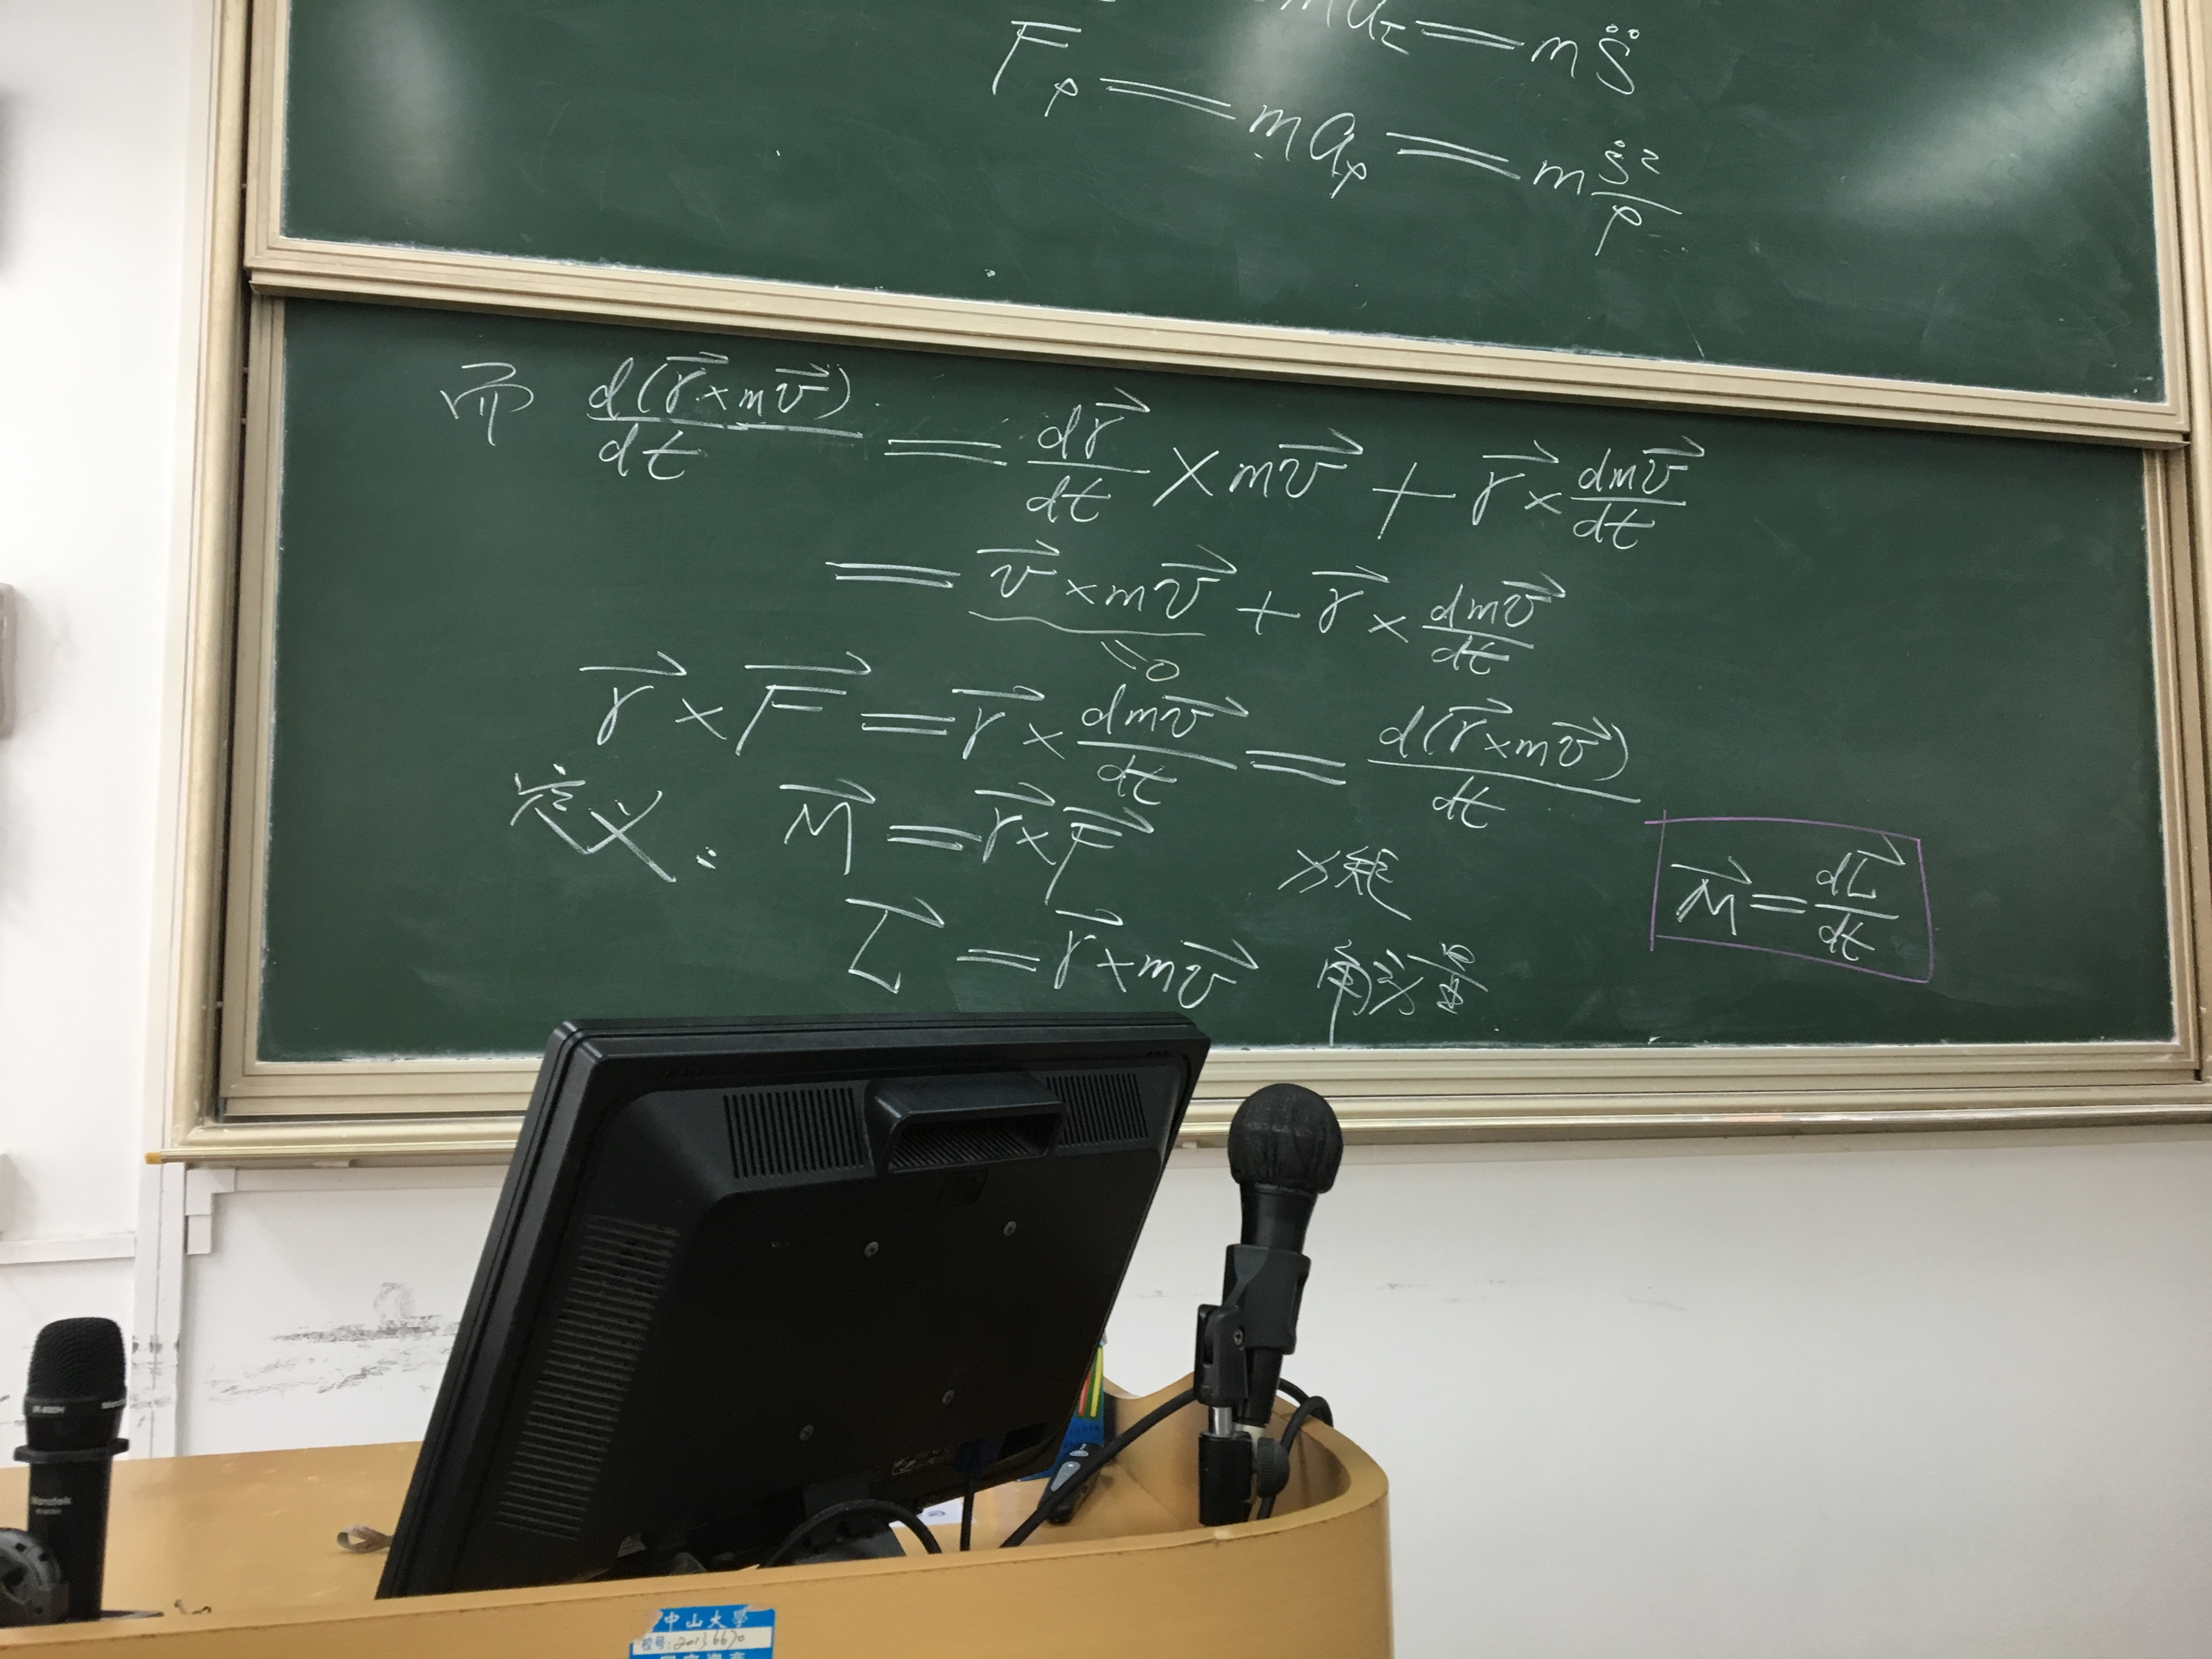 ma_τ = m s̈
F_ρ = m a_ρ = m ṡ²/ρ
而 d(r⃗×mv⃗)/dt = dr⃗/dt × mv⃗ + r⃗ × dmv⃗/dt
= v⃗ × mv⃗ + r⃗ × dmv⃗/dt
=0
r⃗ × F⃗ = r⃗ × dmv⃗/dt = d(r⃗×mv⃗)/dt
定义: M⃗ = r⃗×F⃗ 力矩
M⃗ = dL⃗/dt
L⃗ = r⃗×mv⃗ 角动量
中山大學
校号: 20136670